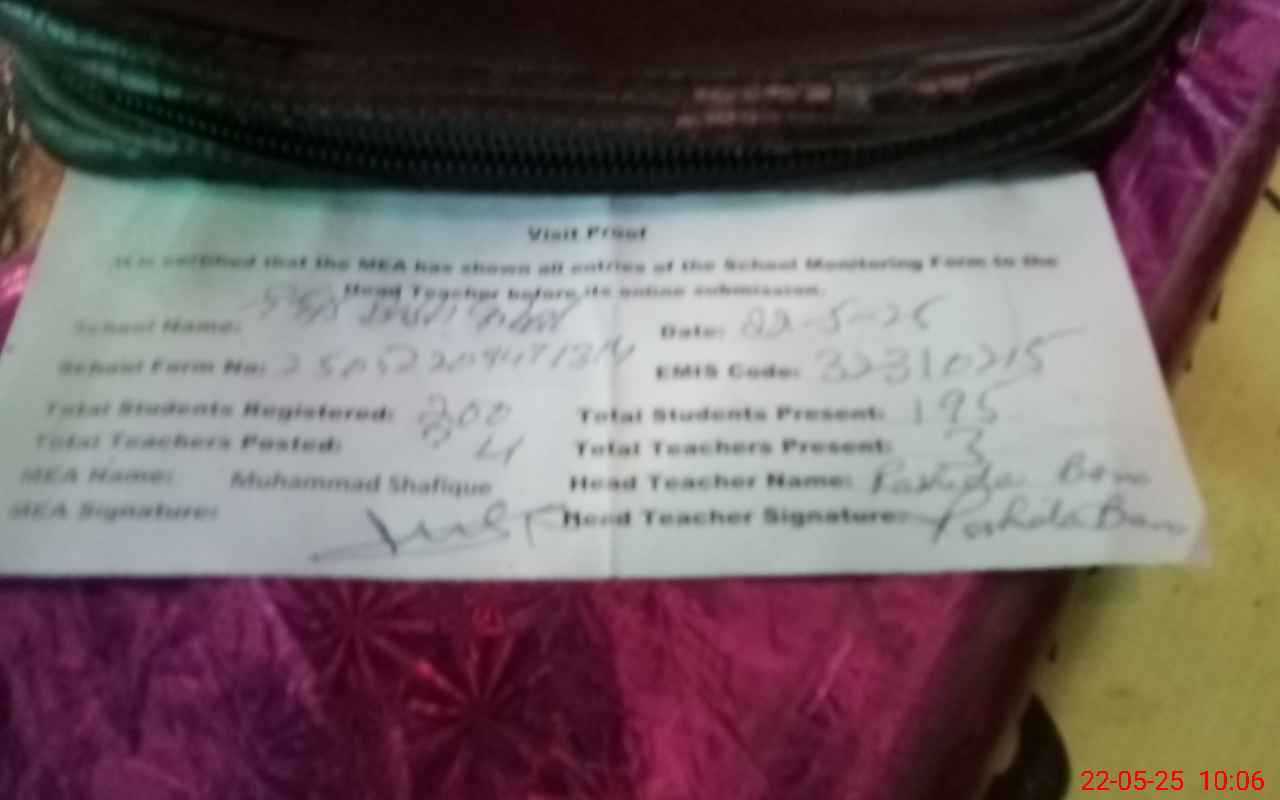 Visit Proof
It is certified that the MEA has shown all entries of the School Monitoring Form to the
Head Teacher before its online submission.
School Name:
Date: 22-5-25
School Form No:
EMIS Code: 32310215
Total Students Registered: 200
Total Students Present: 195
Total Teachers Posted: 4
Total Teachers Present: 3
MEA Name: Muhammad Shafique
Head Teacher Name: Rashida Bano
MEA Signature:
Head Teacher Signature: Rashida Bano
22-05-25 10:06